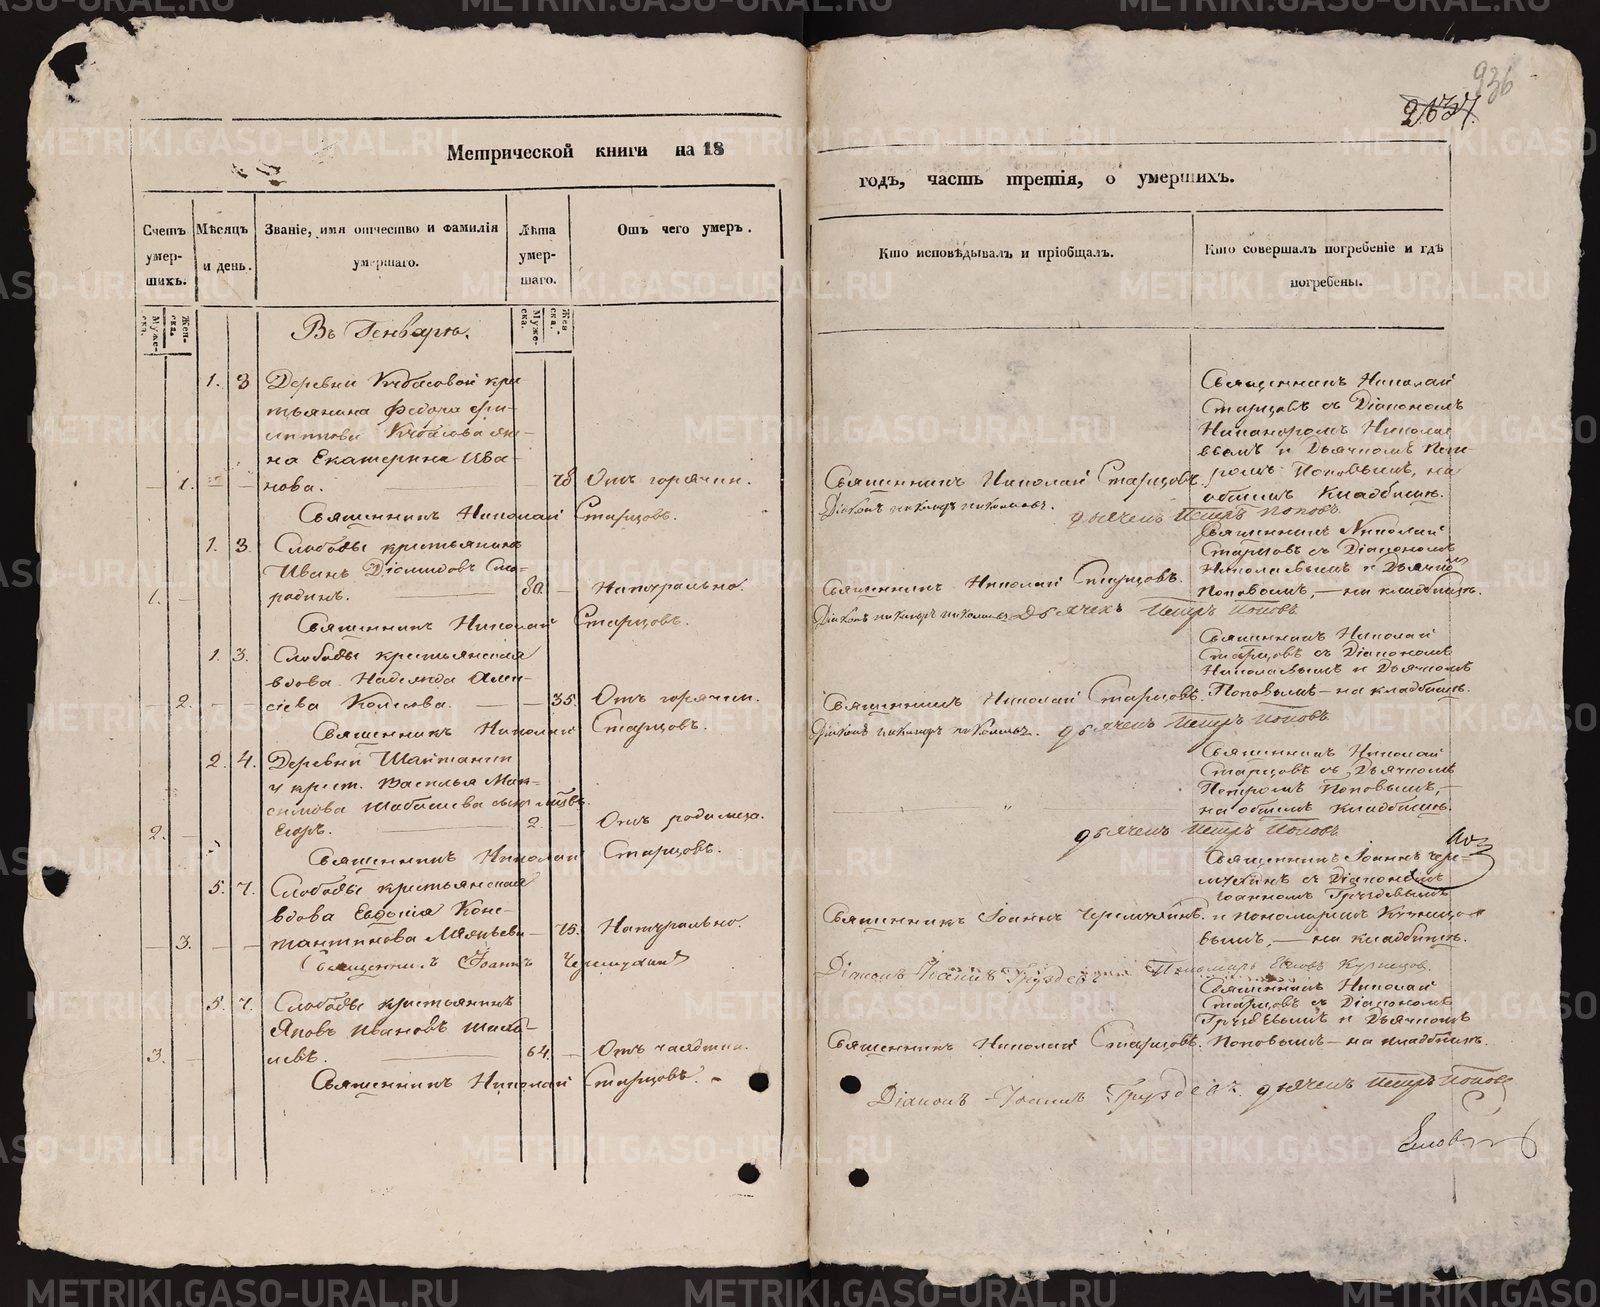 936
Метрической книги на 18
годъ, часть третія, о умершихъ.
Счетъ умер- шихъ.
Мѣсяцъ и день.
Званіе, имя отчество и фамилія умершаго.
Лѣта умер- шаго.
Отъ чего умеръ.
Кто исповѣдывалъ и пріобщалъ.
Кто совершалъ погребеніе и гдѣ погребены.
Муже- ска.
Жен- ска.
Муже- ска.
Жен- ска.
Въ Генварѣ.
1. 3
Деревни
тьянина Федора Фи-
липпова
на Екатерина Ива-
1. нова. 78 Отъ горячки.
Священникъ Николай Старцовъ.
Священникъ Николай Старцовъ.
Діаконъ Никаноръ Николаевъ.
дьячекъ Петръ Поповъ
Священникъ Николай
Старцовъ съ Діакономъ
Никаноромъ Николае
вымъ и Дьячкомъ Пет-
ромъ Поповымъ, на
общемъ кладбищѣ.
1. 3.
Слободы крестьянинъ
Иванъ Смо-
1. родинъ. 80. Натурально.
Священникъ Николай Старцовъ.
Священникъ Николай Старцовъ.
Діаконъ Никаноръ Николаевъ Дьячекъ Петръ Поповъ
Священникъ Николай
Старцовъ съ Діакономъ
Николаевымъ и Дьячком
Поповымъ, — на кладбищѣ.
1. 3.
Слободы крестьянская
вдова Надежда Алек-
2. сіева 35. Отъ горячки.
Священникъ Николай Старцовъ.
Священникъ Николай Старцовъ.
Діаконъ Никаноръ Николаевъ. дьячекъ Петръ Поповъ
Священникъ Николай
Старцовъ съ Діакономъ
Николаевымъ и Дьячкомъ
Поповымъ — на кладбищѣ.
2. 4.
Деревни
у крест. Василья Мак-
симова
2. Егоръ. 2. Отъ родимца.
Священникъ Николай Старцовъ.
"
дьячекъ Петръ Поповъ
Священникъ Николай
Старцовъ съ Дьячкомъ
Петромъ Поповымъ, —
на общемъ кладбищѣ.
5. 7.
Слободы крестьянская
вдова Евдокія Конс-
3. тантинова 75. Натурально.
Священникъ Іоаннъ Черемухинъ
Священникъ Іоаннъ Черемухинъ.
Діаконъ Іоаннъ Груздевъ Пономарь Кузнецов.
Священникъ Іоаннъ Чере-
мухинъ съ Діакономъ
Іоанномъ Груздевымъ
и пономаремъ Кузнецо
вымъ, — на кладбищѣ.
5. 7.
Слободы крестьянинъ
Яковъ Ивановъ
3. 64. Отъ чахотки.
Священникъ Николай Старцовъ.
Священникъ Николай Старцовъ.
Діаконъ Іоаннъ Груздевъ. дьячекъ Петръ Поповъ
Священникъ Николай
Старцовъ съ Діакономъ
Груздевымъ и Дьячкомъ
Поповымъ — на кладбищѣ.